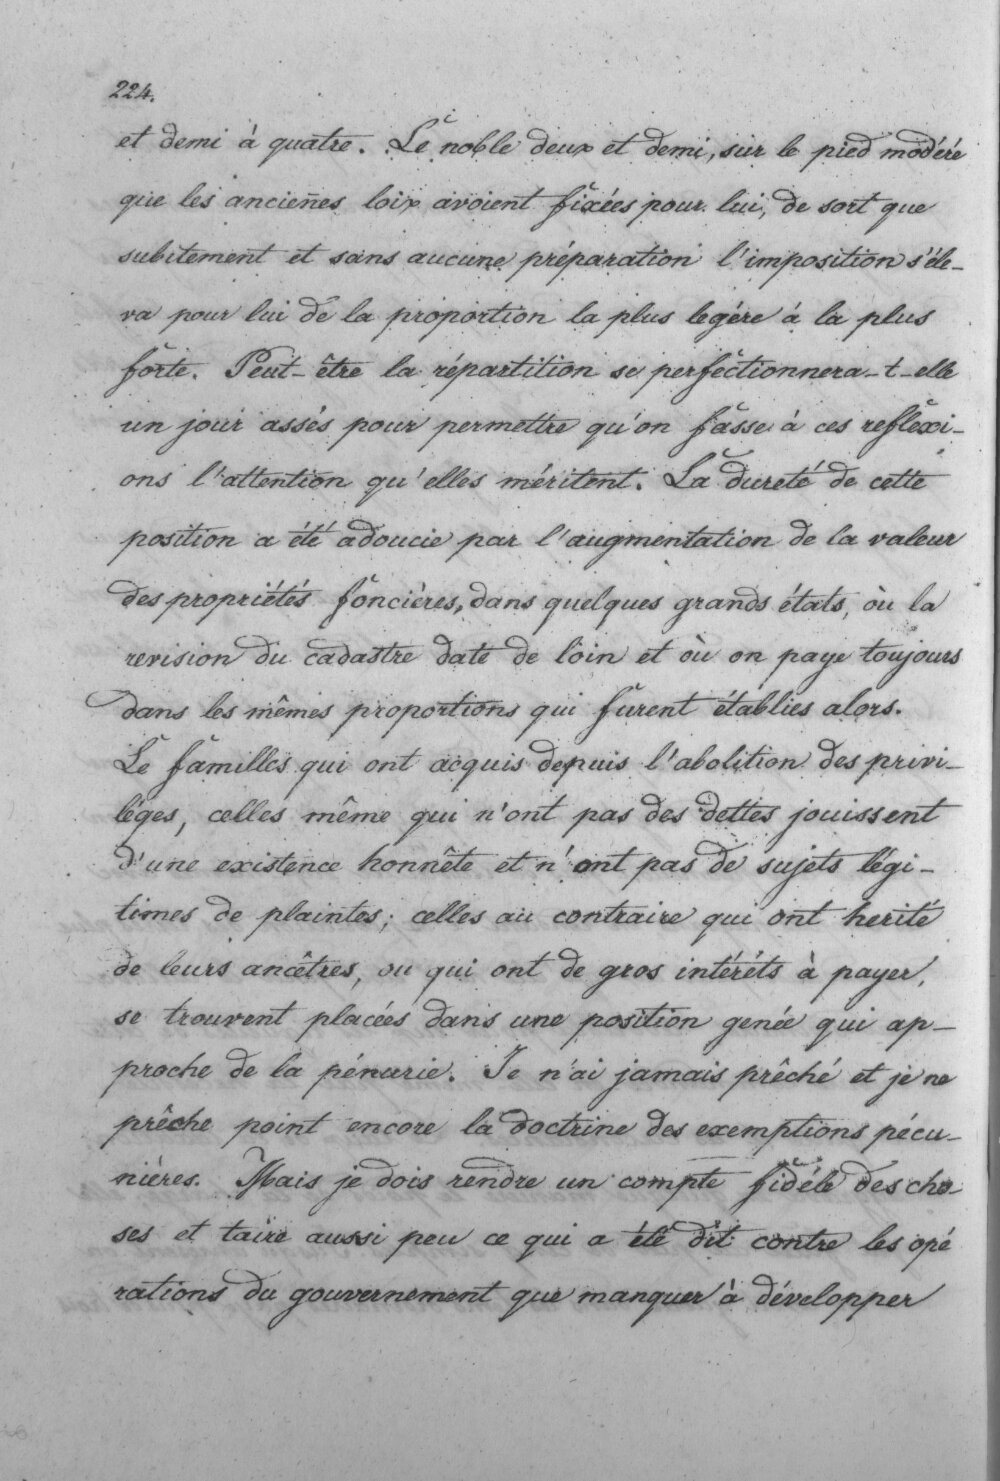 224.
et demi à quatre. Le noble deux et demi, sur le pied modéré
que les anciēnes loix avoient fixées pour lui, de sort que
subitement et sans aucune préparation l'imposition s'éle-
va pour lui de la proportion la plus legére à la plus
forte. Peut-être la répartition se perfectionnera-t-elle
un jour assés pour permettre qu'on fasse à ces reflexi-
ons l'attention qu'elles méritent. La dureté de cette
position a été adoucie par l'augmentation de la valeur
des propriétés foncières, dans quelques grands états, où la
revision du cadastre date de loin et où on paye toujours
dans les mêmes proportions qui furent établies alors.
Le familles qui ont acquis depuis l'abolition des privi-
léges, celles même qui n'ont pas des dettes jouissent
d'une existence honnête et n'ont pas de sujets légi-
times de plaintes; celles au contraire qui ont herité
de leurs ancêtres, ou qui ont de gros intéréts à payer,
se trouvent placées dans une position genée qui ap-
proche de la pénurie. Je n'ai jamais prêché et je ne
prêche point encore la doctrine des exemptions pécu-
nières. Mais je dois rendre un compte fidéle des cho-
ses et taire aussi peu ce qui a été dit contre les opé
rations du gouvernement que manquer à développer